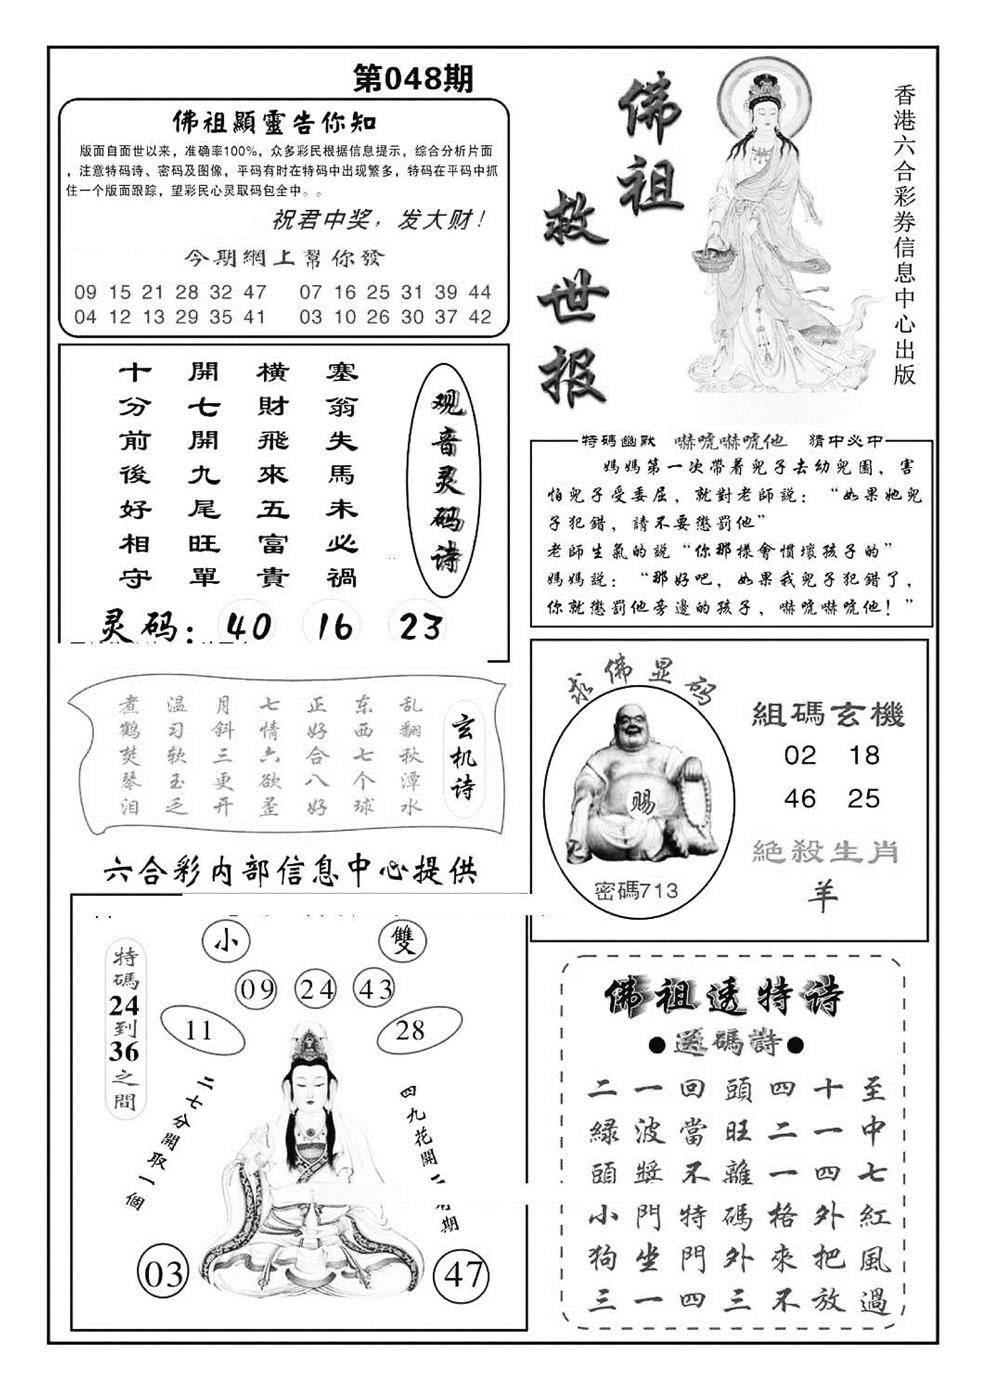 第048期
佛祖顯靈告你知
版面自面世以来，准确率100%，众多彩民根据信息提示，综合分析片面
，注意特码诗、密码及图像，平码有时在特码中出现繁多，特码在平码中抓
住一个版面跟踪，望彩民心灵取码包全中。。
祝君中奖，发大财！
今期網上幫你發
09 15 21 28 32 47 07 16 25 31 39 44
04 12 13 29 35 41 03 10 26 30 37 42
佛祖
救世报
香港六合彩券信息中心出版
观音灵码诗
塞翁失馬未必禍
橫財飛來五富貴
開七開九尾旺單
十分前後好相守
灵码：40 16 23
特碼幽默 嚇唬嚇唬他 猜中必中
媽媽第一次帶着兒子去幼兒園，害
怕兒子受委屈，就對老師說：“如果她兒
子犯錯，請不要懲罰他”
老師生氣的說“你那樣會慣壞孩子的”
媽媽說：“那好吧，如果我兒子犯錯了，
你就懲罰他旁邊的孩子，嚇唬嚇唬他！”
玄机诗
乱翻秋潭水
东西七个球
正好合八好
七情六欲歪
月斜三更开
温习软玉乏
煮鹤焚琴泪
六合彩内部信息中心提供
求佛显码
赐
密碼713
組碼玄機
02 18
46 25
絕殺生肖
羊
特碼24到36之間
小 雙
09 24 43
11 28
二七分開取一個
四九花開二
期
03 47
佛祖透特诗
●送碼詩●
至中七紅風過
十一四外把放
四二一格來不
頭旺離碼外三
回當不特門四
一波獎門坐一
二緑頭小狗三